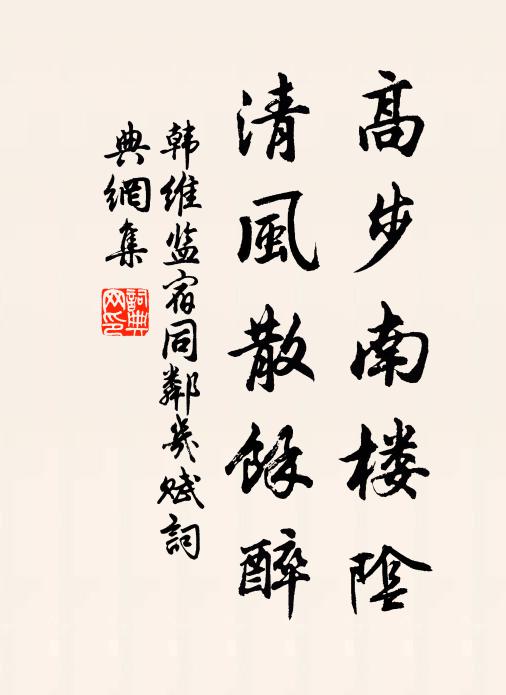 高步南楼陰
清風散餘醉
韩维监宿同鄰几赋詞
典網集
詞典
网印